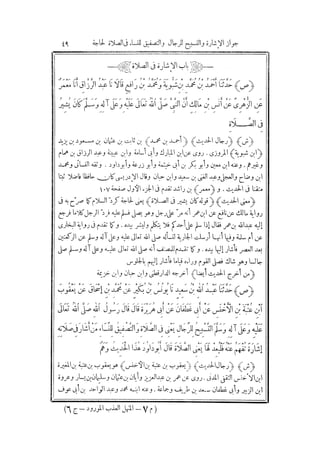 جواز الإشارة والتسبيح للرجال والتصفيق للنساء فى الصلاة لحاجة ٤٩
باب الإشارة فى الصلاة
(ص) حَدَّثَنَا أَحْمَدُ بْنُ مُحَمَّدِ بْنِ شَبُّويَةَ وَمُحَمَّدُ بْنُ رَافِعٍ قَالَا نَا عَبْدُ الرَّزَّاقِ أَنَا مَعْمَرٌ
عَنِ الزُّهْرِىِّ عَنْ أَنَسِ بْنِ مَالِكٍ أَنَّ النَّبِىَّ صَلَّى اللهُ تَعَالَى عَلَيْهِ وَعَلَى آلِهِ وَسَلَّمَ كَانَ يُشِيرُ
فِى الصَّلَاةِ
(ش) (رجال الحديث) (أحمد بن محمد) بن ثابت بن عثمان بن مسعود بن يزيد
(ابن شبوية) المروزى. روى عن ابن المبارك وأبى أسامة وابن عيينة وعبد الرزاق بن همام
وغيرهم. وعنه ابن معين وأبو بكر بن أبى خيثمة وأبو زرعة وأبو داود. وثقه النسائى ومحمد
ابن وضاح والعجلى وعبد الغنى بن سعيد وابن حبان وقال الإدريسى كان حافظا فاضلا ثبتا
متقنا فى الحديث. و (معمر) بن راشد تقدم فى الجزء الأول صفحة ١٠٧
(معنى الحديث) (قوله كان يشير فى الصلاة) يعنى لحاجة كرد السلام كما صرح به فى
رواية مالك عن نافع عن ابن عمر أنه مر على رجل وهو يصلى فسلم عليه فرد الرجل كلاما فرجع
إليه عبد الله بن عمر فقال إذا سلم على أحدكم فلا يتكلم وليشر بيده. وكما تقدم فى رواية البخارى
عن أم سلمة وفيها أنها أرسلت الجارية تسأله صلى الله تعالى عليه وعلى آله وسلم عن الركعتين
بعد العصر فأشار إليها بيده. وكما تقدم للمصنف أنه صلى الله تعالى عليه وعلى آله وسلم صلى
جالسا وهو شاك فصلى القوم وراءه قياما فأشار إليهم بالجلوس
(من أخرج الحديث أيضا) أخرجه الدارقطنى وابن حبان وابن خزيمة
(ص) حَدَّثَنَا عَبْدُ اللهِ بْنُ سَعِيدٍ نَا يُونُسُ بْنُ بُكَيْرٍ عَنْ مُحَمَّدِ بْنِ إِسْحَاقَ عَنْ يَعْقُوبَ
ابْنِ عُتْبَةَ بْنِ الْأَخْنَسِ عَنْ أَبِى غَطَفَانَ عَنْ أَبِى هُرَيْرَةَ قَالَ قَالَ رَسُولُ اللهِ صَلَّى اللهُ تَعَالَى
عَلَيْهِ وَعَلَى آلِهِ وَسَلَّمَ التَّسْبِيحُ لِلرِّجَالِ يَعْنِى فِى الصَّلَاةِ وَالتَّصْفِيقُ لِلنِّسَاءِ مَنْ أَشَارَ فِى صَلَاتِهِ
إِشَارَةً تُفْهَمُ عَنْهُ فَلْيَعُدْ لَهَا يَعْنِى الصَّلَاةَ قَالَ أَبُو دَاوُدَ هَذَا الْحَدِيثُ وَهَمٌ
(ش) (رجال الحديث) (يعقوب بن عتبة بن الأخنس) هو يعقوب بن عتبة بن المغيرة
ابن الأخنس الثقفى المدنى. روى عن عمر بن عبد العزيز وأبان بن عثمان وسليمان بن يسار وعروة
ابن الزبير وأبى غطفان سعد بن طريف وجماعة. وعنه ابنه محمد وعبد الواحد بن أبى عوف
(م ٧ - المنهل العذب المورود - ج ٦)